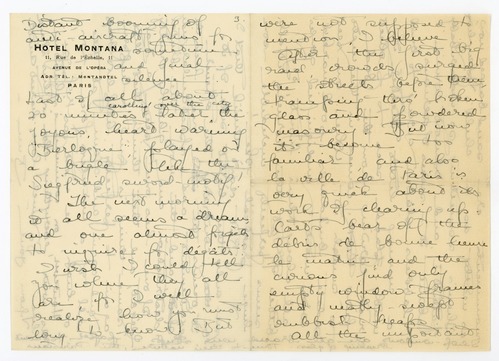 Distant booming of
3.
anti-aircraft guns for
HOTEL MONTANA
11, Rue de l'Echelle, 11
AVENUE DE L'OPÉRA
ADR. TÉL.: MONTANOTEL
PARIS
sometimes
and final
silence.
Last of all about
carolling over the city
20 minutes later the
joyous, heart warming
"Berloque" played on
a bugle like the
Siegfried sword motif!
The next morning
it all seems a dream
and one almost forgets
to inquire for dégâts
I wish I could tell
you where they all
are, for I well
realize how you must
long to know But
were not supposed to
mention, I believe
After the first big
raid crowds surged
the streets before them
transfixing this broken
glass and powdered
masonry But now
it's become too
familiar and also
la ville de Paris is
very quick about its
work of clearing up.
Carts bear off the
débris de bonne heure
le matin and the
curious find only
empty window frames
and neatly swept
rubbish heaps
All the important